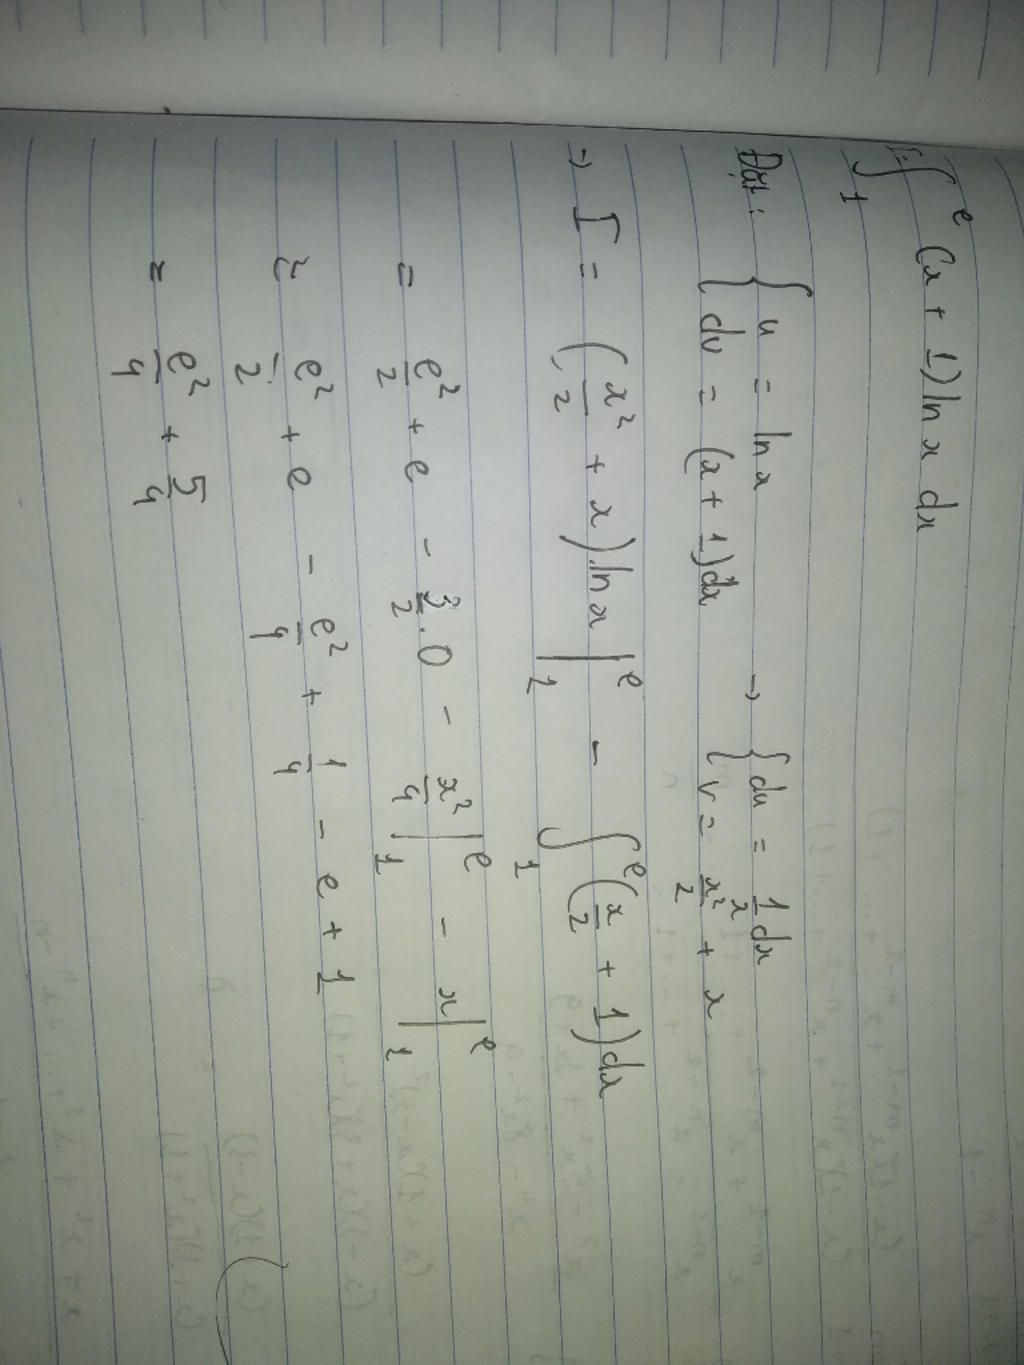 I = ∫₁ᵉ (x + 1) ln x dx
Đặt: { u = ln x → { du = 1/x dx
{ dv = (x + 1)dx { v = x²/2 + x
→ I = (x²/2 + x).ln x |₁ᵉ - ∫₁ᵉ (x/2 + 1)dx
= e²/2 + e - 3/2 . 0 - x²/4 |₁ᵉ - x |₁ᵉ
= e²/2 + e - e²/4 + 1/4 - e + 1
= e²/4 + 5/4